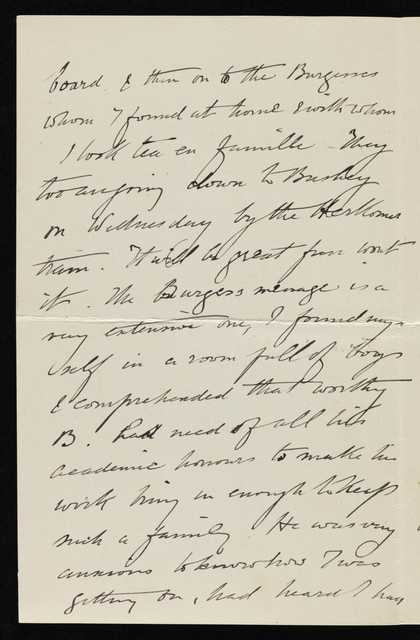 board & then on to the Burgesses
whom I found at home & with whom
I took tea en famille - They
too are going down to Bushey
on Wednesday by the Herkomer
train. It will be great fun wont
it. The Burgess menage is a
very extensive one, I found my-
self in a room full of boys
& comprehended that worthy
B. had need of all his
academic honours to make his
work bring in enough to keep
such a family He was very
anxious to know how I was
getting on, had heard I had